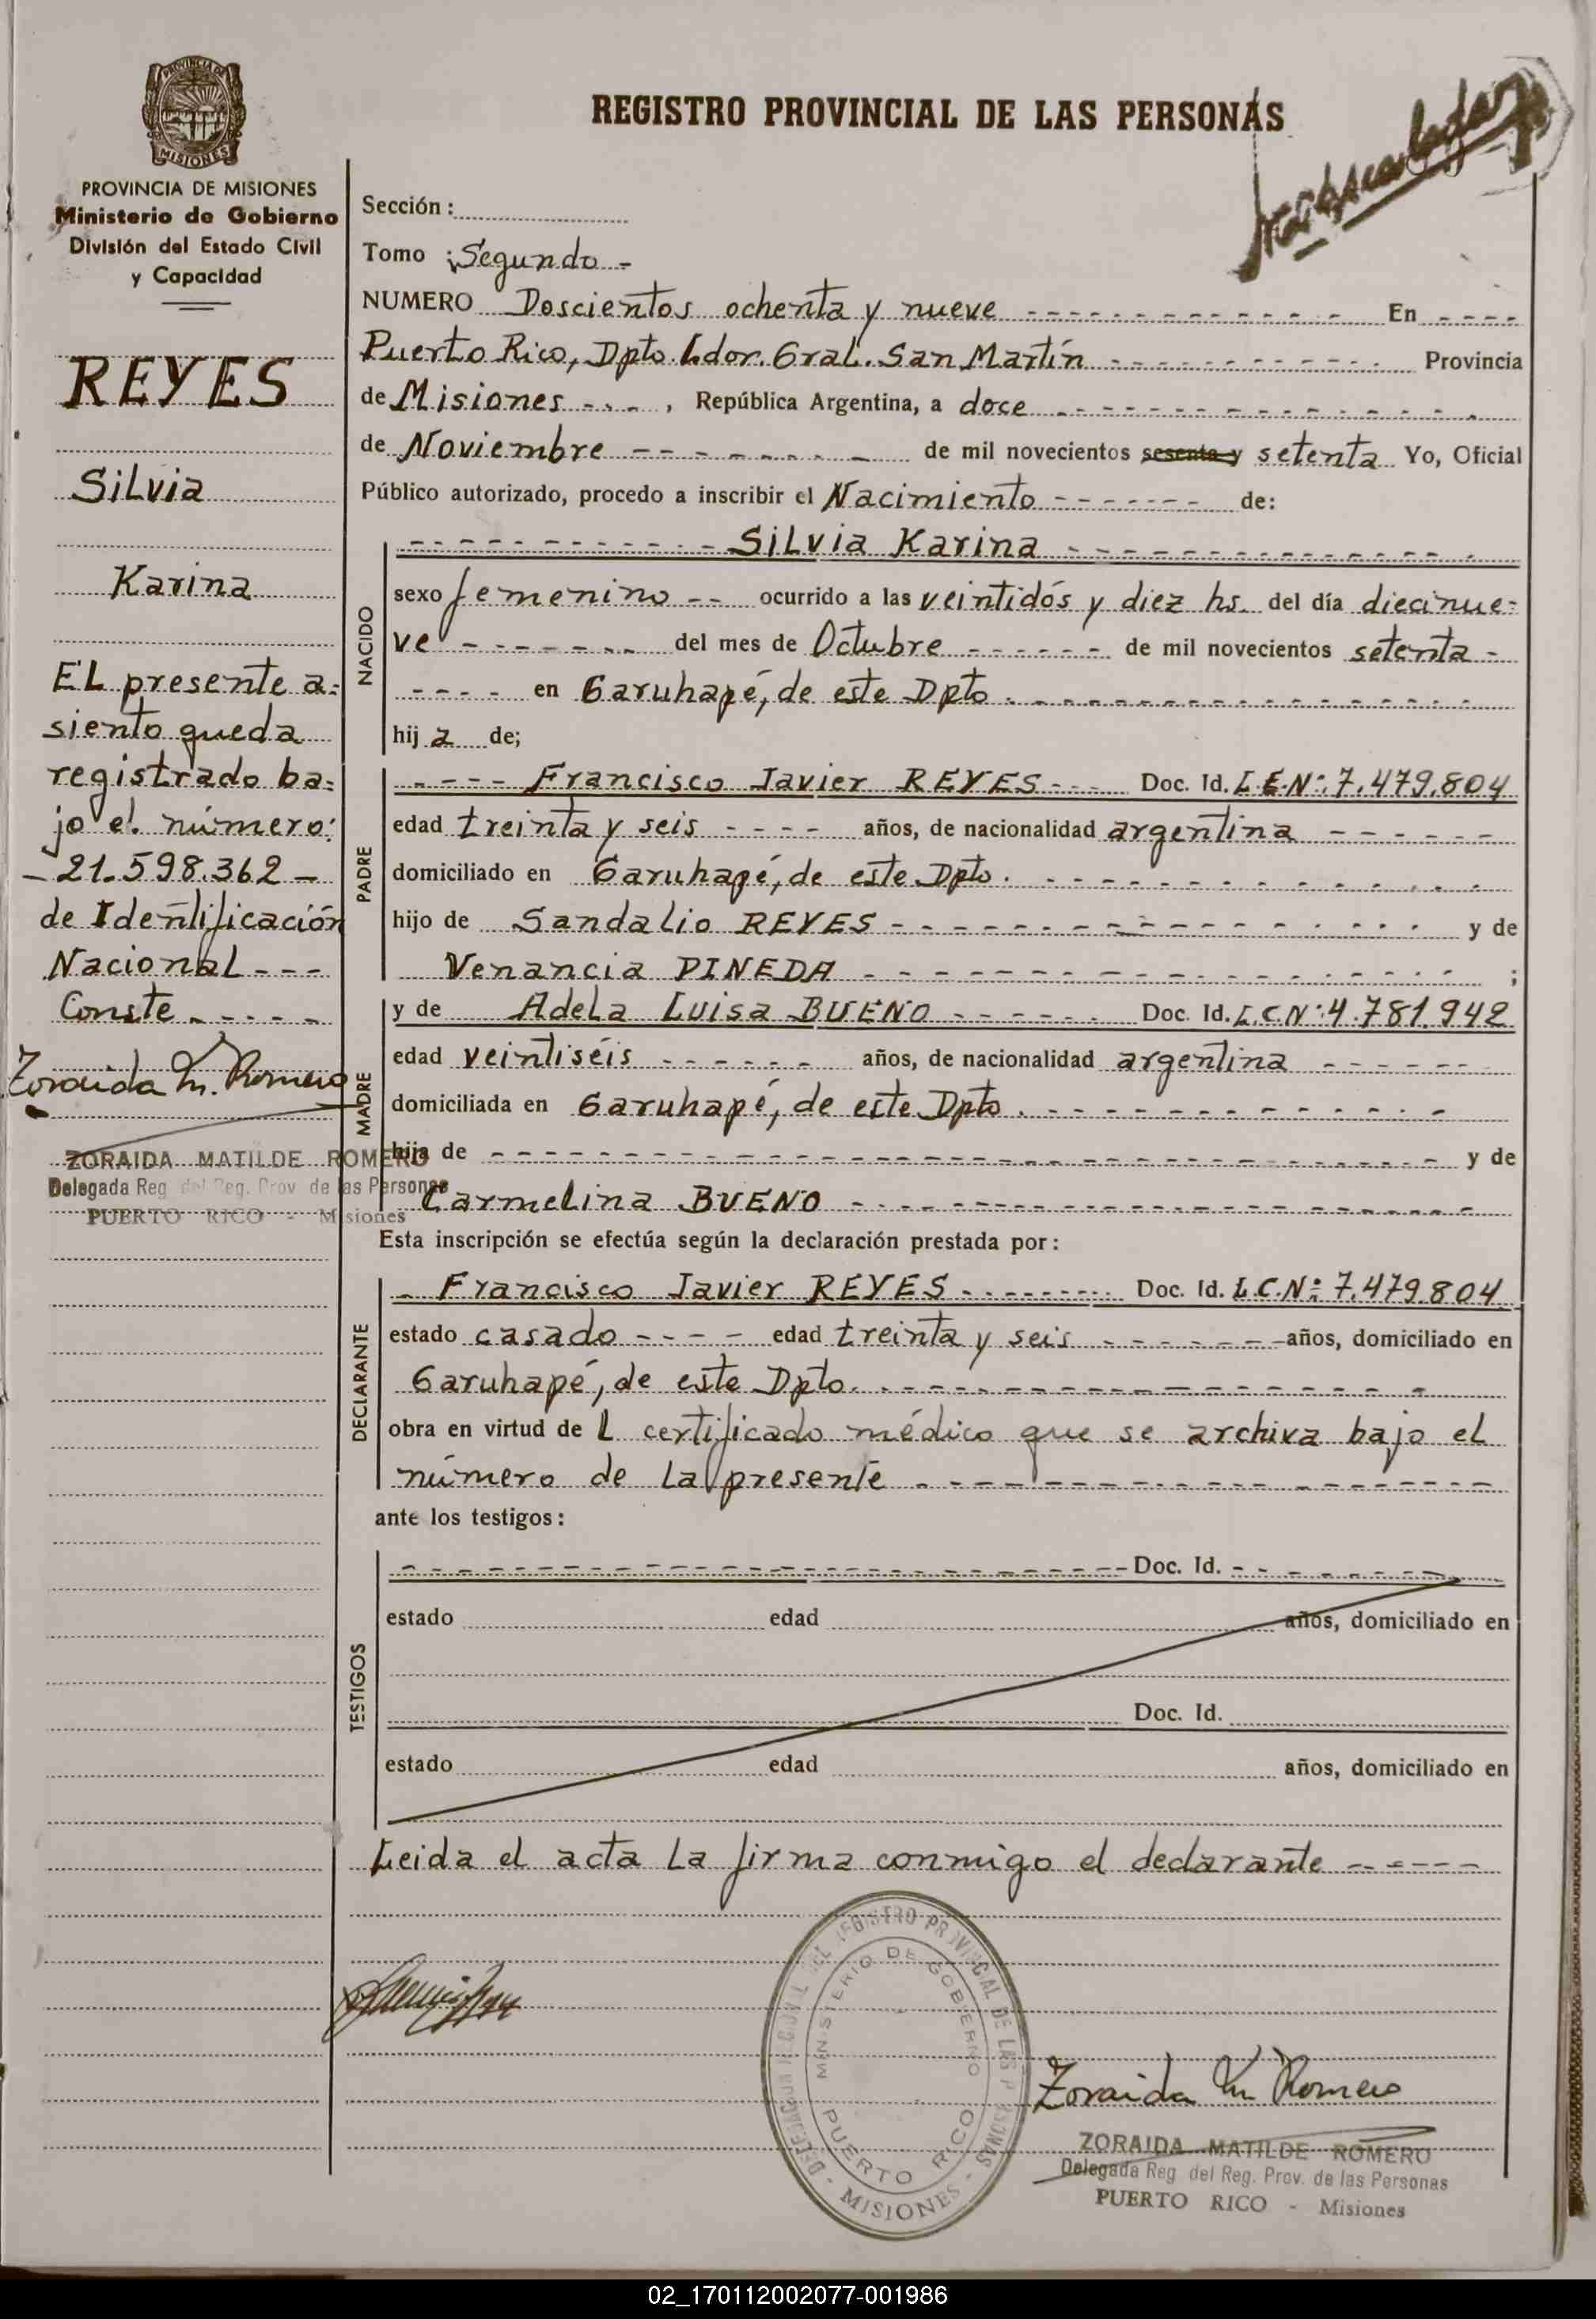 REGISTRO PROVINCIAL DE LAS PERSONAS
PROVINCIA DE MISIONES
MISIONES
PROVINCIA DE MISIONES
Ministerio de Gobierno
División del Estado Civil
y Capacidad
REYES
Silvia
Karina
El presente a=
siento queda
registrado ba=
jo el número:
- 21.598.362 -
de Identificación
Nacional - - -
Conste - - - - -
Zoraida M. Romero
ZORAIDA MATILDE ROMERO
Delegada Reg del Reg. Prov de las Personas
PUERTO RICO - Misiones
Sección:
Tomo : Segundo -
NUMERO Doscientos ochenta y nueve - - - En - - - -
Puerto Rico, Dpto. Ldor. Gral. San Martín - - - Provincia
de Misiones - - - , República Argentina, a doce - - -
de Noviembre - - - de mil novecientos sesenta y setenta Yo, Oficial
Público autorizado, procedo a inscribir el Nacimiento - - - de:
NACIDO
- - - Silvia Karina - - -
sexo femenino - - ocurrido a las veintidós y diez hs. del día diecinue=
ve - - - del mes de Octubre - - - de mil novecientos setenta -
- - - - en Garuhapé, de este Dpto. - - -
hij a de;
PADRE
- - - - Francisco Javier REYES - - - Doc. Id. L.E.Nº: 7.479.804
edad treinta y seis - - - - años, de nacionalidad argentina - - -
domiciliado en Garuhapé, de este Dpto. - - -
hijo de Sandalio REYES - - - y de
Venancia PINEDA - - - ;
MADRE
y de Adela Luisa BUENO - - - Doc. Id. L.C.Nº: 4.781.942
edad veintiséis - - - años, de nacionalidad argentina - - -
domiciliada en Garuhapé, de este Dpto. - - -
hija de - - - y de
Carmelina BUENO - - -
Esta inscripción se efectúa según la declaración prestada por:
DECLARANTE
- Francisco Javier REYES - - - Doc. Id. L.C.Nº: 7.479.804
estado casado - - - - edad treinta y seis - - - años, domiciliado en
Garuhapé, de este Dpto. - - -
obra en virtud de l certificado médico que se archiva bajo el
número de la presente - - -
ante los testigos:
TESTIGOS
- - - Doc. Id. - - -
estado edad años, domiciliado en
Doc. Id.
estado edad años, domiciliado en
Leida el acta la firma conmigo el declarante - - - - -
DELEGACION REGIONAL DEL REGISTRO PROVINCIAL DE LAS PERSONAS - MISIONES -
MINISTERIO DE GOBIERNO
PUERTO RICO
Zoraida M. Romero
ZORAIDA MATILDE ROMERO
Delegada Reg del Reg. Prov. de las Personas
PUERTO RICO - Misiones
02_170112002077-001986